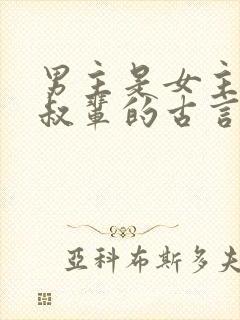 男主是女主
叔輩的古言
亞科布斯多夫